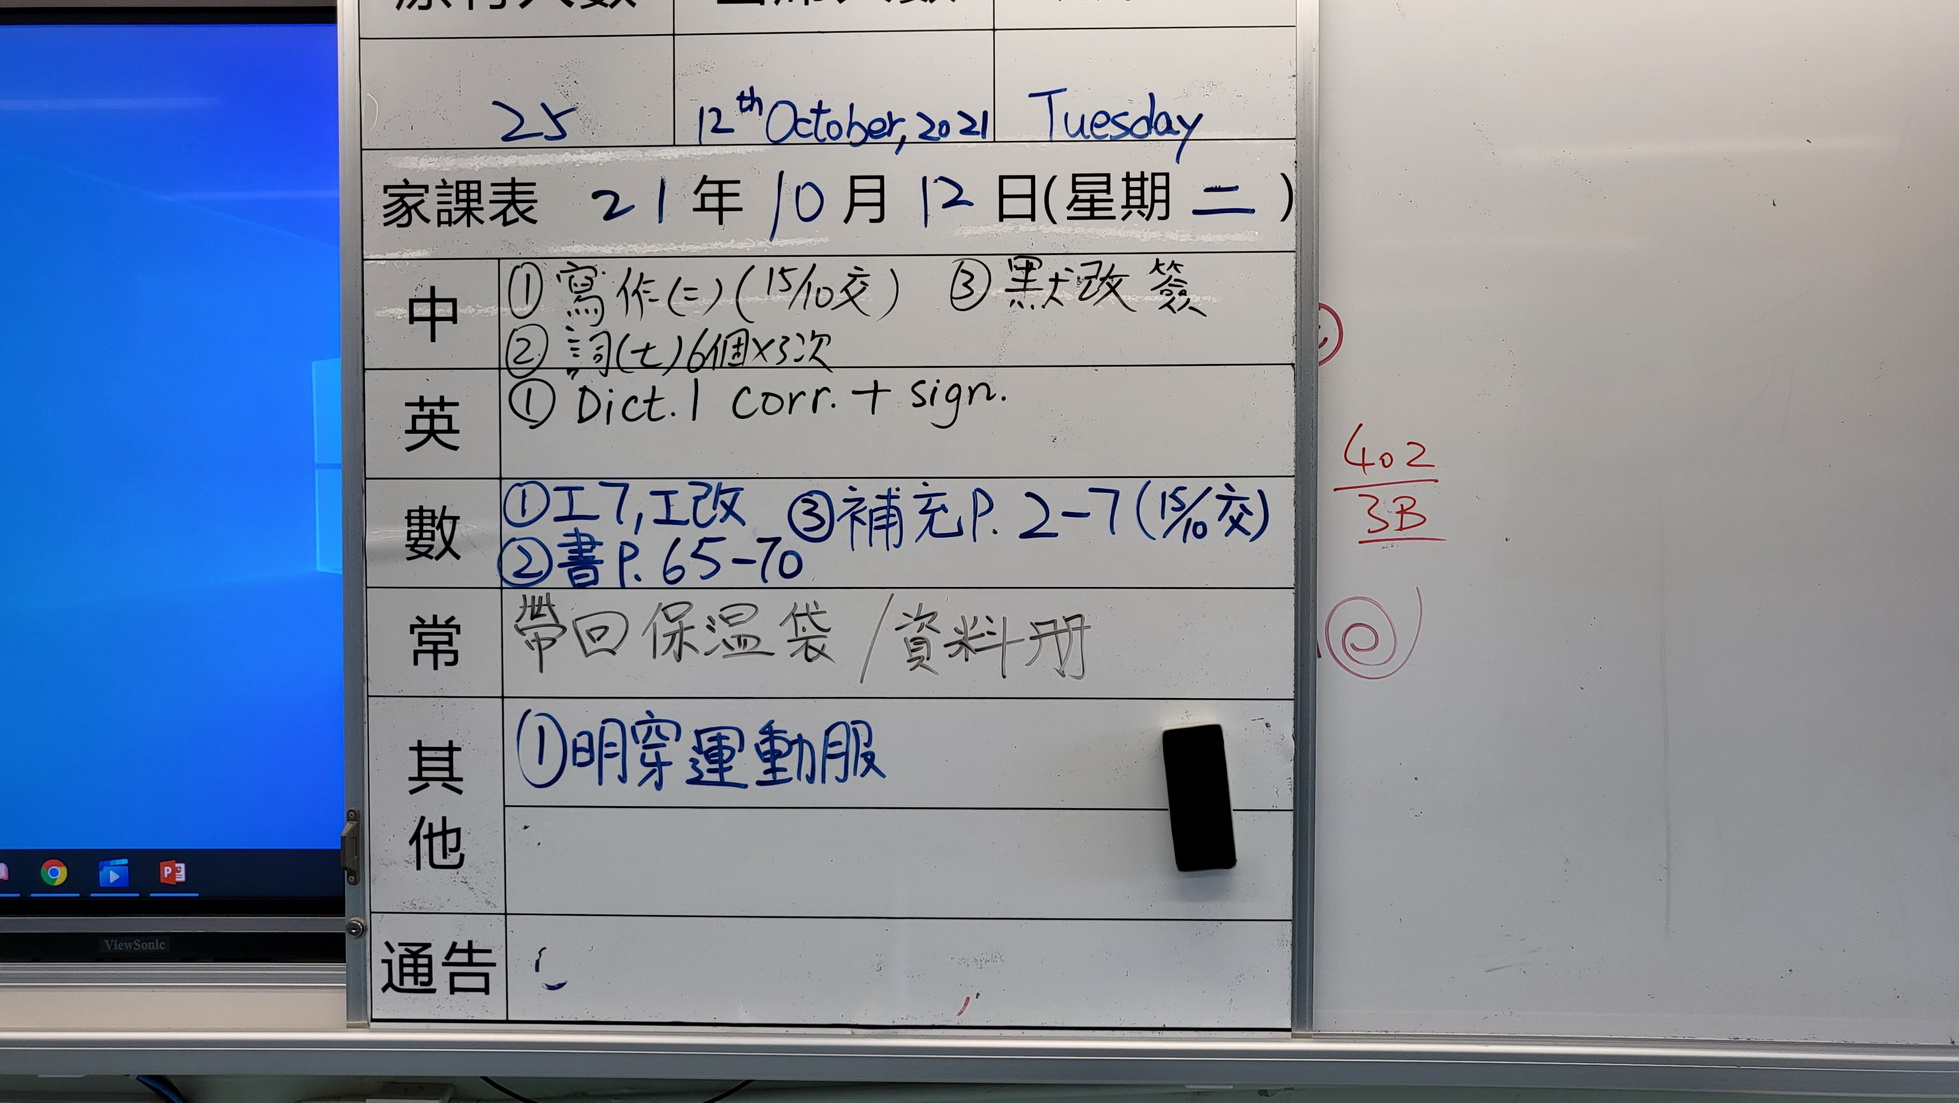 25 12th October, 2021 Tuesday
家課表 21年10月12日(星期二)
中 ①寫作(二)(15/10交) ③默改簽
②詞(七)6個×3次
英 ①Dict. 1 corr. + sign.
數 ①工7,工改 ③補充P. 2-7(15/10交)
②書P. 65-70
常 帶回保溫袋/資料册
其他 ①明穿運動服
通告
402
3B
ViewSonic